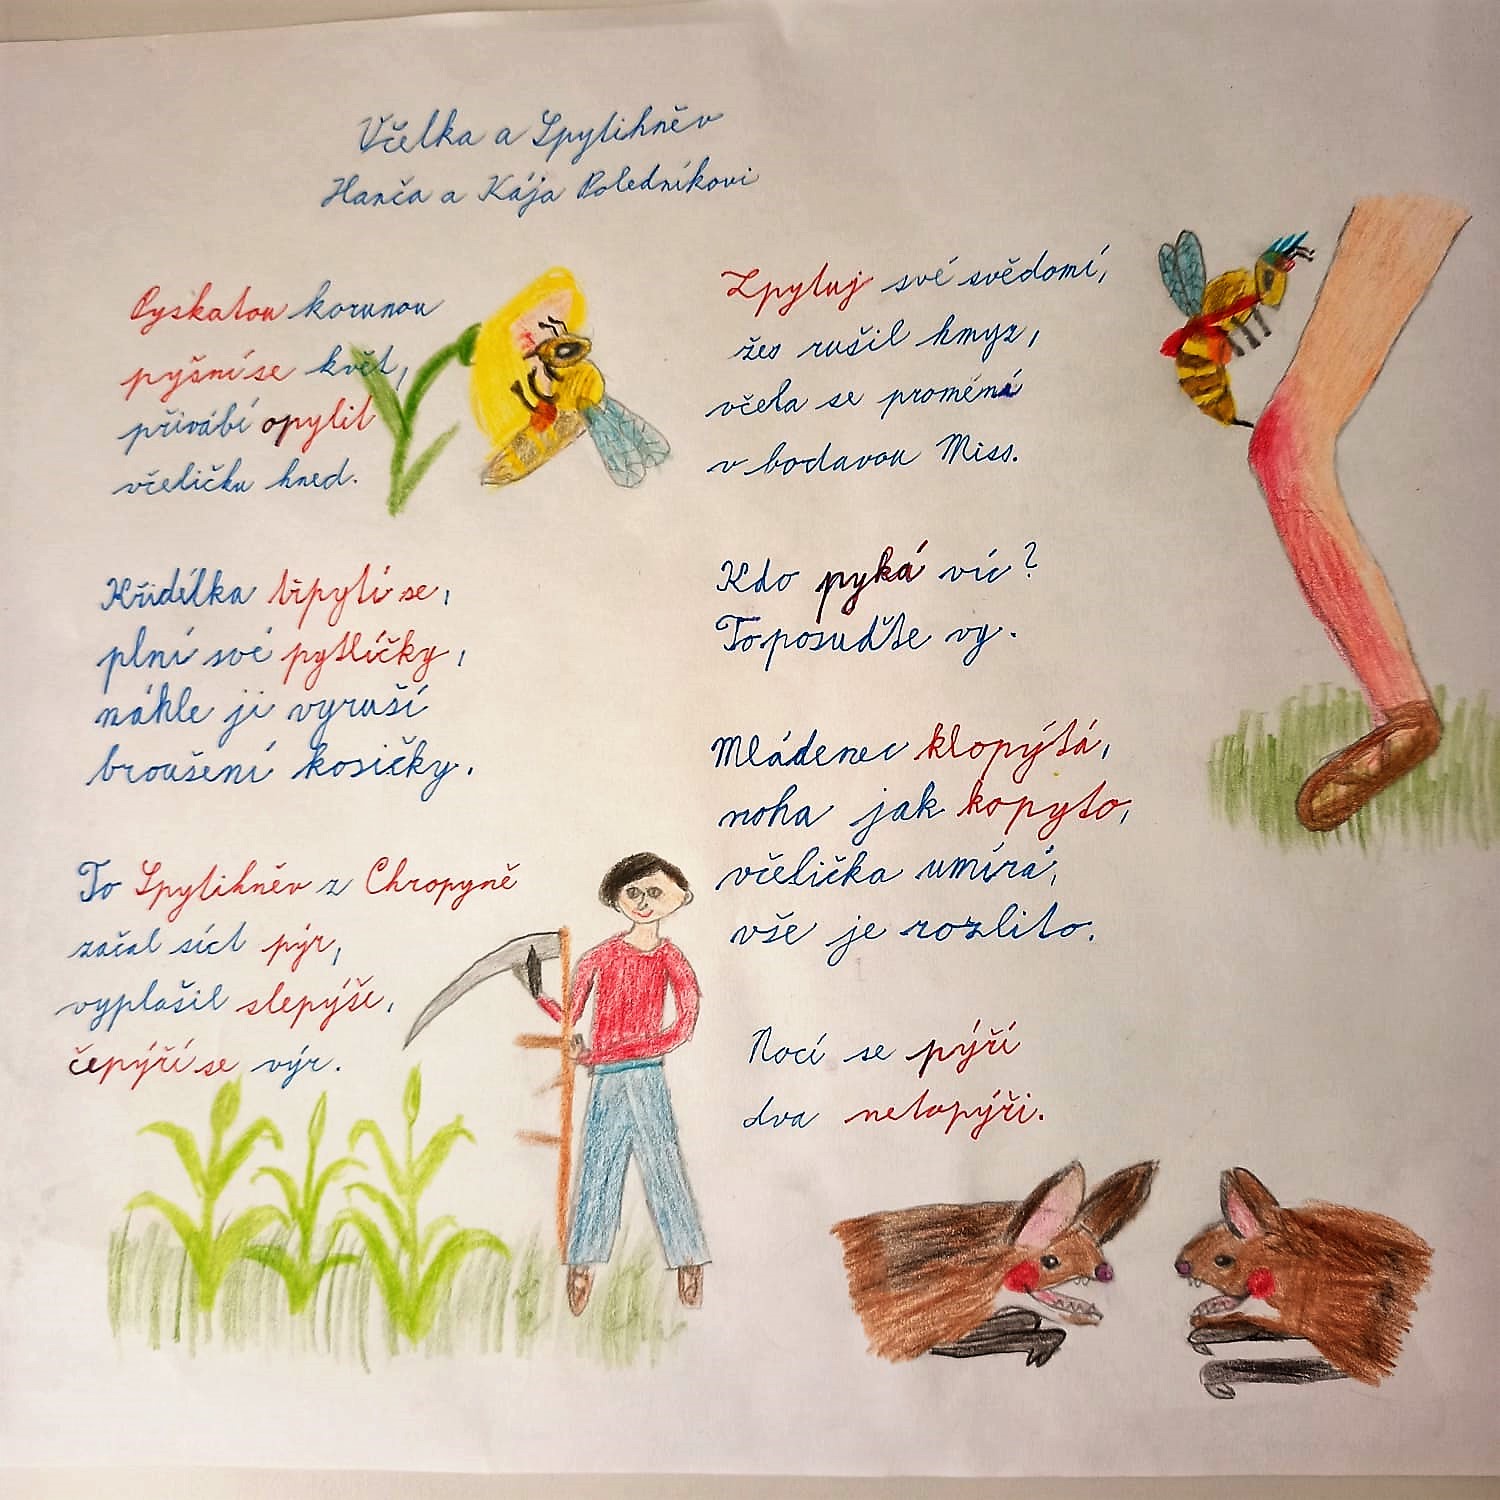 Včelka a Spytihněv
Hanča a Kája Poledníkovi
Pyskatou korunou
pyšní se květ,
přivábí opylit
včeličku hned.
Křidélka třpytí se,
plní své pytlíčky,
náhle ji vyruší
broušení kosičky.
To Spytihněv z Chropyně
začal síct pýr,
vyplašil slepýše,
čepýří se výr.
Zpytuj své svědomí,
žes rušil hmyz,
včela se promění
v bodavou Miss.
Kdo pyká víc?
To posuďte vy.
Mládenec klopýtá,
noha jak kopyto,
včelička umírá,
vše je rozlito.
Nocí se pýří
dva netopýři.